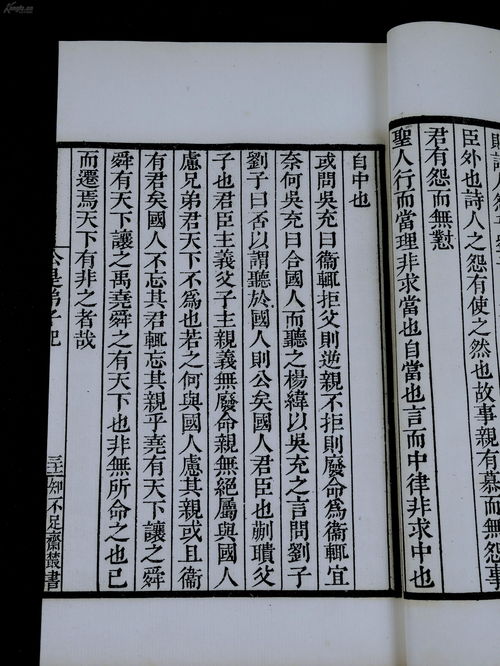 臣外也詩人之怨有使之然也故事親有慕而無怨事
君有怨而無懟
聖人行而當理非求當也自當也言而中律非求中也
自中也
或問吳充曰衞輒拒父則逆親不拒則廢命為衞輒宜
奈何吳充曰合國人而聽之楊緯以吳充之言問劉子
劉子曰否以謂聽於國人則公矣國人君臣也蒯聵父
子也君臣主義父子主親義無廢命親無絕屬與國人
慮兄弟君天下不為也若之何與國人慮其親或且衞
有君矣國人不忘其君輒忘其親乎堯有天下讓之舜
舜有天下讓之禹堯舜之有天下也非無所命之也已
而遷焉天下有非之者哉
公是弟子記
知不足齋叢書
Kongfz.cn